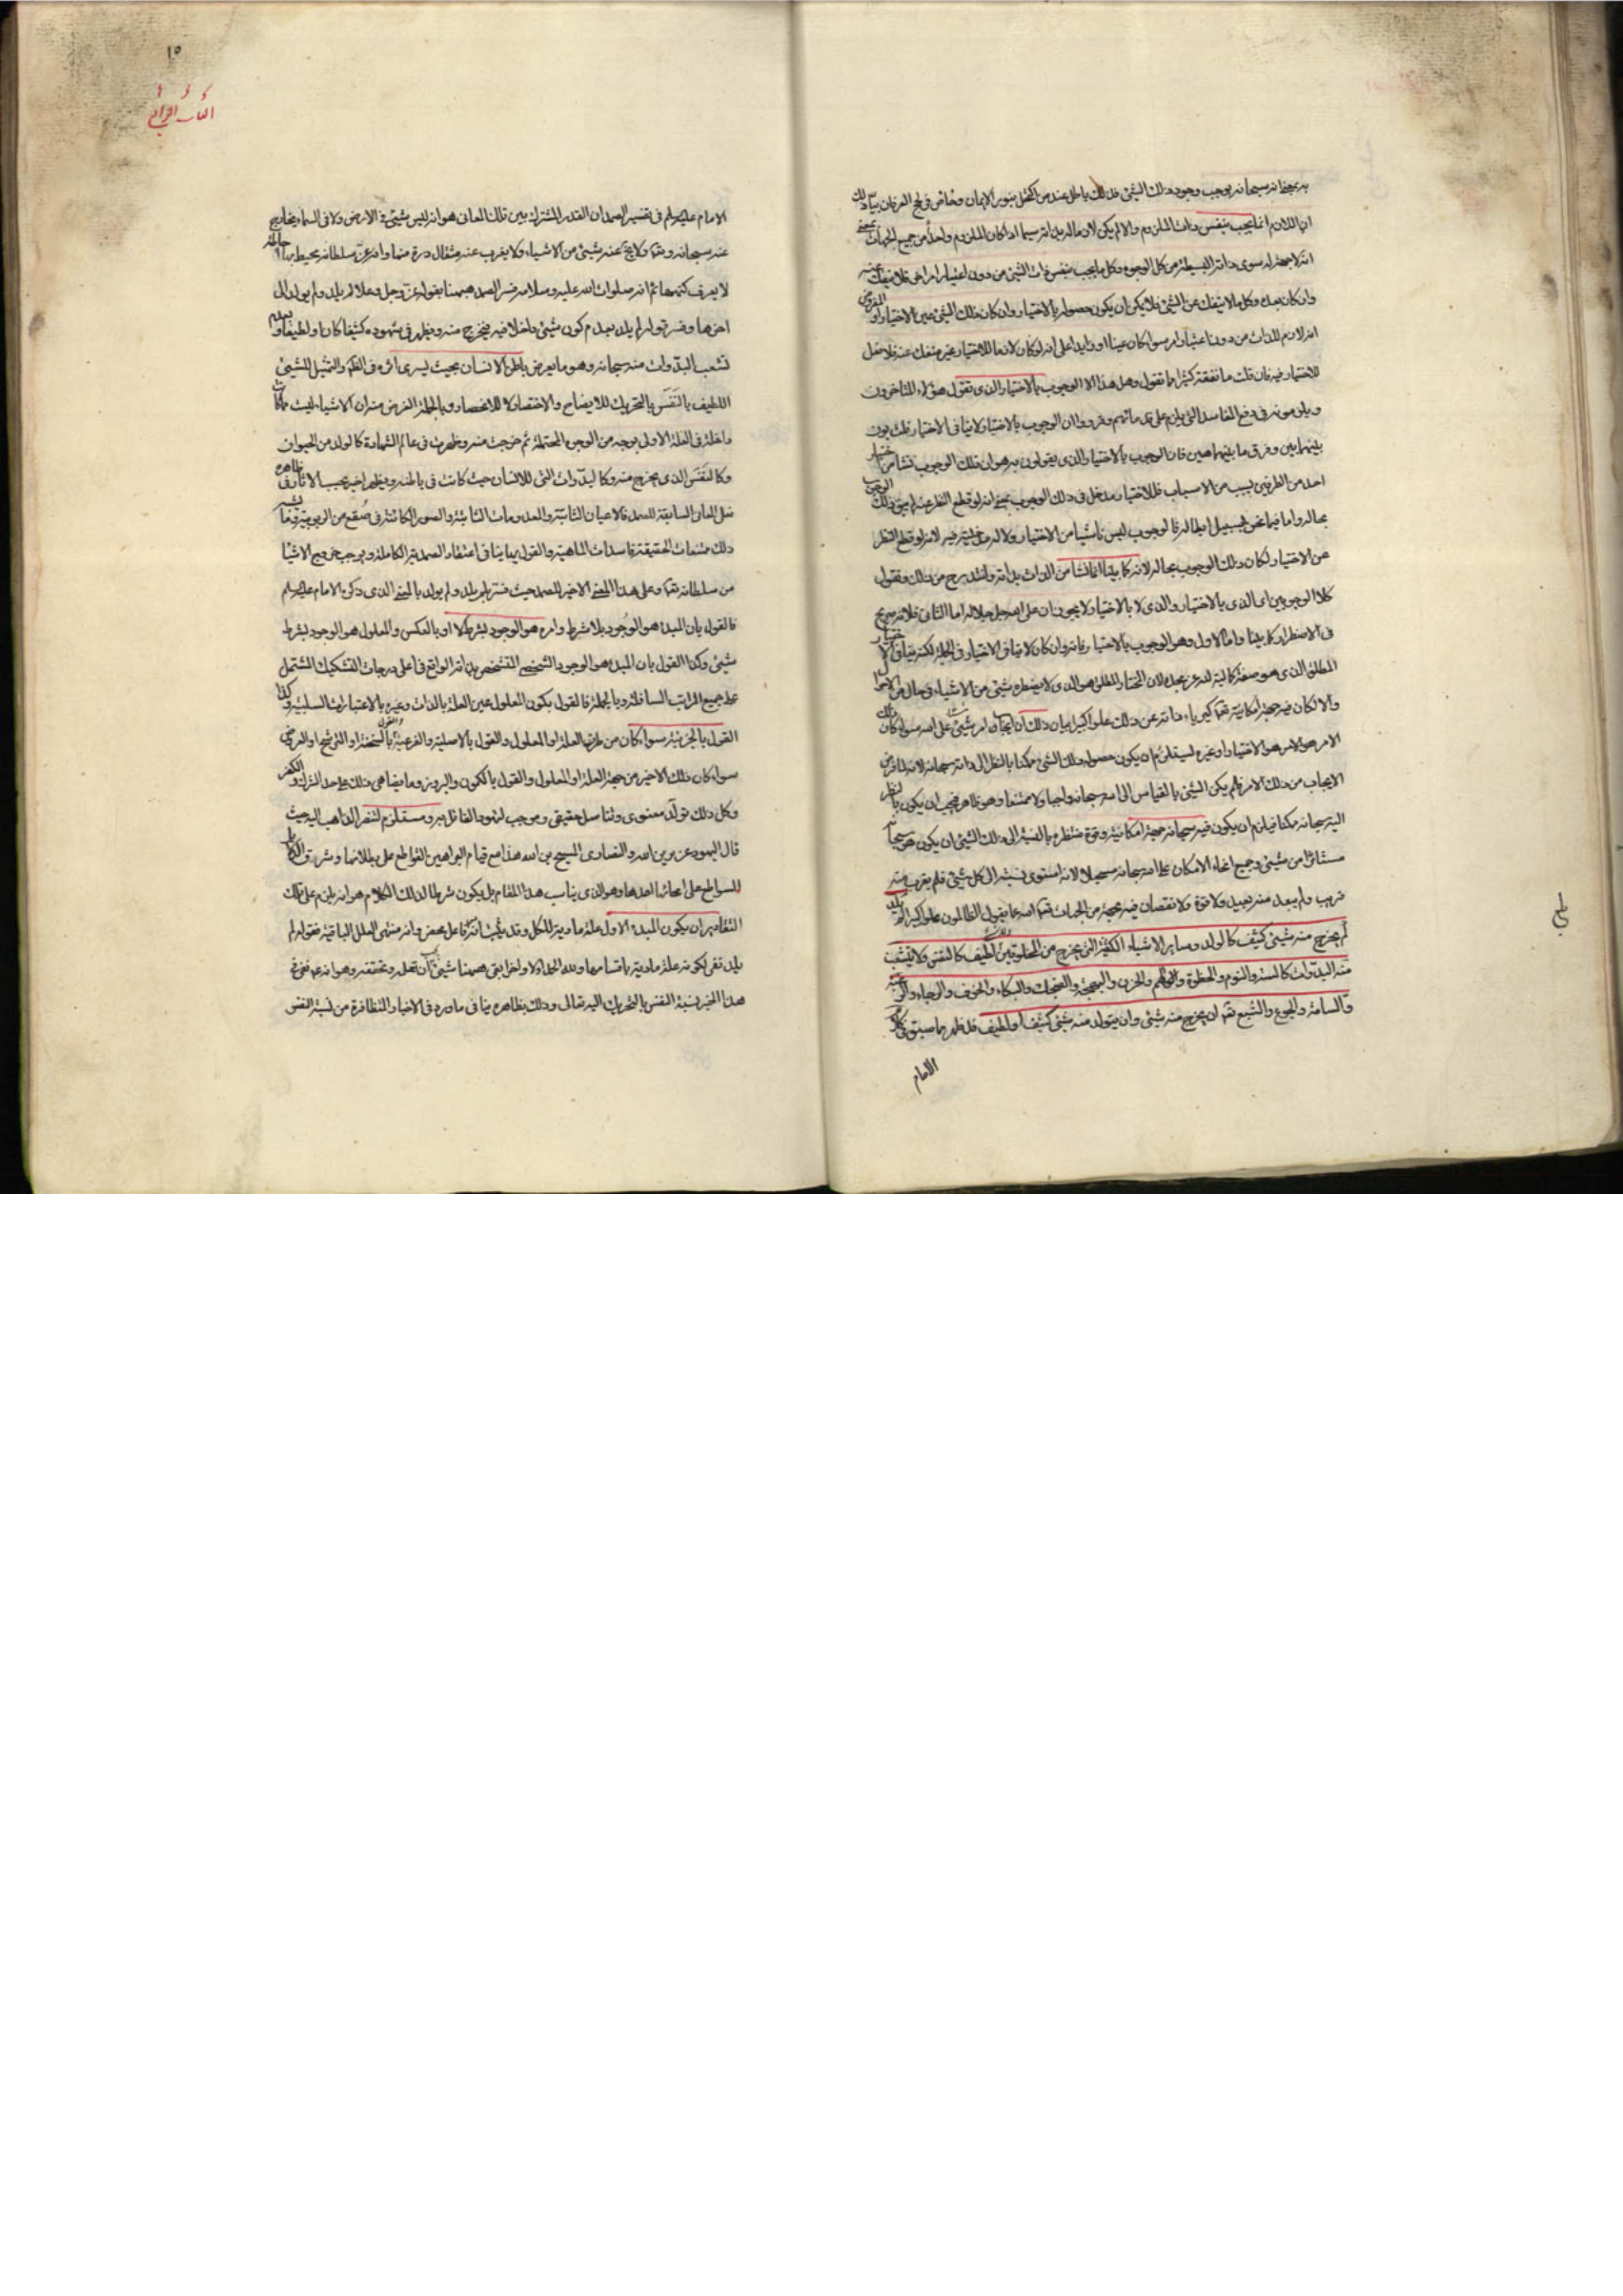 به بمعنى انه سبحانه يوجب وجود ذلك الشيئ فذلك باطل عند من اكتحل بنور الايمان وخاض فى لجج العرفان بيان ذلك
ان اللازم انما يجب بنفس ذات الملزوم والا لم يكن لازما له بذاته سيما اذا كان الملزوم واحداً من جميع الجهات بمعنى
انه لا جهة له سوى ذاته البسيطة من كل الوجوه وكل ما يجب بنفس ذات الشيئ من دون اعتبار امر اخر فلا ينفك عنه
وان كان بعد وكل ما لا ينفك عن الشيئ فلا يمكن ان يكون حصوله بالاختيار وان كان ذلك الشيئ عين الاختيار او المفروض
انه لازم للذات من دون اعتبار امر سواء كان عينا او زايدا على انه لو كان لازما للاختيار غير منفك عنه فلا دخل
للاختيار فيه فان قلت ما نفقه كثيرا مما تقول وهل هذا الا الوجوب بالاختيار الذى تقول هؤلاء المتاخرون
ويلوذون فى دفع المفاسد التى يلزم على قدمائهم وقرروا ان الوجوب بالاختيار لا ينافى الاختيار قلت بون
بينهما بين وفرق ما بينهما هين فان الوجوب بالاختيار الذى يقولون به هو ان ذلك الوجوب نشا من اختيار
احد من الطرفين بسبب من الاسباب فللاختيار مدخل فى ذلك الوجوب بمعنى انه لو قطع النظر عنه لم يبق ذلك الوجوب
بحاله واما فيما نحن بسبيل ابطاله فالوجوب ليس ناشيا من الاختيار ولا له مدخلية فيه لانه لو قطع النظر
عن الاختيار لكان ذلك الوجوب بحاله لانه كما بينا انما نشا من الذات بذاته ولنتدرج من ذلك ونقول
كلا الوجوبين اى الذى بالاختيار والذى لا بالاختيار لا يجوزان على الله جل جلاله اما الثانى فلانه صريح
فى الاضطرار كما بينا واما الاول وهو الوجوب بالاختيار فانه وان كان لا ينافى الاختيار فى الجملة لكنه ينافى الاختيار
المطلق الذى هو صفة كمالية لله عز مجده لان المختار المطلق هو الذى لا يضطره شيئ من الاشياء فى حال من الاحوال
والا لكان فيه جهة امكانية تعالى كبرياء ذاته عن ذلك علوا كبيرا بيان ذلك ان ايجاب امر شيئ على الله سواء كان ذلك
الامر هو الامر هو الاختيار او غيره ليستلزم ان يكون حصول ذلك الشيئ ممكنا بالنظر الى ذاته سبحانه لانه لما فرض
الايجاب من ذلك الامر فلم يكن الشيئ بالقياس الى الله سبحانه واجبا ولا ممتنعا وهو ظاهر فيجب ان يكون بالنظر
اليه سبحانه ممكنا فيلزم ان يكون فيه سبحانه جهة امكانية وقوة منتظرة بالنسبة الى ذلك الشيئ ان يكون هو سبحانه
مستاثرا من شيئ وجميع انحاء الامكان على الله سبحانه مستحيلا لانه استوى نسبته الى كل شيئ فلم يقرب منه
قريب ولم يبعد منه بعيد ولا قوة ولا نقصان فيه بجهة من الجهات تعالى الله عما يقول الظالمون علوا كبيرا لم يلد
لم يخرج منه شيئ كثيف كالولد وساير الاشياء الكثيفة التى يخرج من المخلوقين ولا شيئ لطيف كالنفس ولا يتشعب
منه البدوات كالسنة والنوم والخطرة والهم والحزن والبهجة والضحك والبكاء والخوف والرجاء والرغبة
والسامة والجوع والشبع تعالى ان يخرج منه شيئ وان يتولد منه شيئ كثيف او لطيف قد ظهر مما سبق فى كلام
الامام
بلغ
١٥
الامام عليه السلام فى تفسير الصمد ان القدر المشترك بين تلك المعانى هو انه ليس شيئ فى الارض ولا فى السماء بخارج
عنه سبحانه وتعالى ولا يخفى عنه شيئ من الاشياء ولا يعزب عنه مثقال ذرة منها وانه عز سلطانه محيط بها احاطة
لا يعرف كنهها ثم انه صلوات الله عليه وسلامه فسر الصمد ههنا بقوله عز وجل وعلا لم يلد ولم يولد الى
اخرها وفسر قوله لم يلد بعدم كون شيئ داخلا فيه فيخرج منه ويظهر فى شهوده كثيفا كان او لطيفا وبعدم
تشعب البدوات منه سبحانه وهو ما يعرض باطن الانسان بحيث يسرى اثره فى الظاهر والتمثيل للشيئ
اللطيف بالنفَس بالتحريك للايضاح والاختصار لا للانحصار وبالجملة الغرض منه ان الاشياء ليست مما كانت
داخلة فى العلة الاولى بوجه من الوجوه المحتملة ثم خرجت منه وظهرت فى عالم الشهادة كالولد من الحيوان
وكالنفَس الذى يخرج منه وكالبدوات التى للانسان حيث كانت فى باطنه ويظهر اخيرا بحسب الاثار فى ظاهره
فعلى المعانى السابقة للصمد فالاعيان الثابتة والمعدومات الثابتة والصور الكائنة فى صُقع من الربوبية وما يشبه
ذلك ممتنعات الحقيقة فاسدات الماهية والقول بها ينافى اعتقاد الصمدية الكاملة ويوجب خروج الاشياء
من سلطانه تعالى وعلى هذا المعنى الاخير للصمد حيث فسر بلم يلد ولم يولد بالمعنى الذى ذكره الامام عليه السلام
فالقول بان المبدء هو الوجود بلا شرط وامره هو الوجود بشرط لا او بالعكس والمعلول هو الوجود بشرط
شيئ وكذا القول بان المبدء هو الوجود الشخصى المتشخص بذاته الواقع فى اعلى درجات التشكيك المشتمل
على جميع المراتب السافلة وبالجملة فالقول بكون المعلول عين العلة بالذات وغيره بالاعتبارات السلبية وكذا
القول بالجزئية سواء كان من طرف العلة او المعلول والقول بالاصلية والفرعية والقول بالسنخية او الترشح او العروض
سواء كان ذلك الاخير من جهة العلة او المعلول والقول بالكمون والبروز وما يضاهى ذلك على حد الشرك والكفر
وكل ذلك تولد معنوى وتناسل حقيقى وموجب لتهود القائل به ومستلزم لتنصر الذاهب اليه حيث
قال اليهود عزير بن الله والنصارى المسيح بن الله هذا مع قيام البراهين القواطع على بطلانها وشروق الدلائل
السواطع على احالتها احدها وهو الذى يناسب هذا المقام بل يكون شرحا لذلك الكلام هو انه يلزم على تلك
التقادير ان يكون المبدء الاول علة مادية للكل وقد ثبت انه فاعل محض وانه منتهى العلل الباقية فقوله لم
يلد نفى لكونه علة مادية باقسامها ولله الحمد اولا واخرا بقى ههنا شيئ يجب ان تعلمه وتحققه وهو انه عم نفى فى
هذا الخبر نسبة النفس بالتحريك اليه تعالى وذلك بظاهره ينافى ما ورد فى الاخبار المتظافرة من نسبة النفس